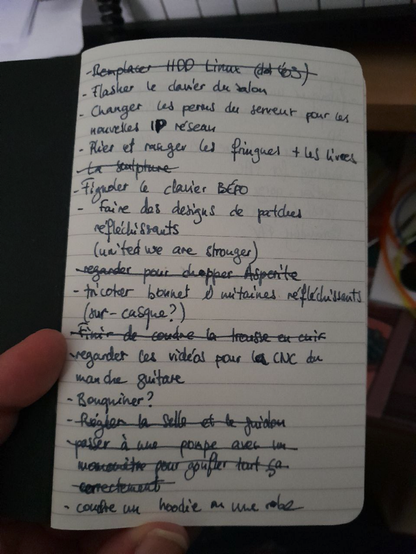 - Remplacer HDD Linux
- Flasher le clavier du salon
- Changer les perms du serveur pour les
nouvelles IP réseau
- Plier et ranger les fringues + les livres
- La sculpture
- Fignoler le clavier BÉPO
- Faire des designs de patches
réfléchissants
(united we are stronger)
- regarder pour chopper Asperite
- tricoter bonnet & mitaines réfléchissants
(sur-casque?)
- Finir de coudre la trousse en cuir
- regarder les vidéos pour la CNC du
manche guitare
- Bouquiner?
- Régler la selle et le guidon
passer à une pompe avec un
manomètre pour gonfler tout ça
correctement
- coudre un hoodie en une robe